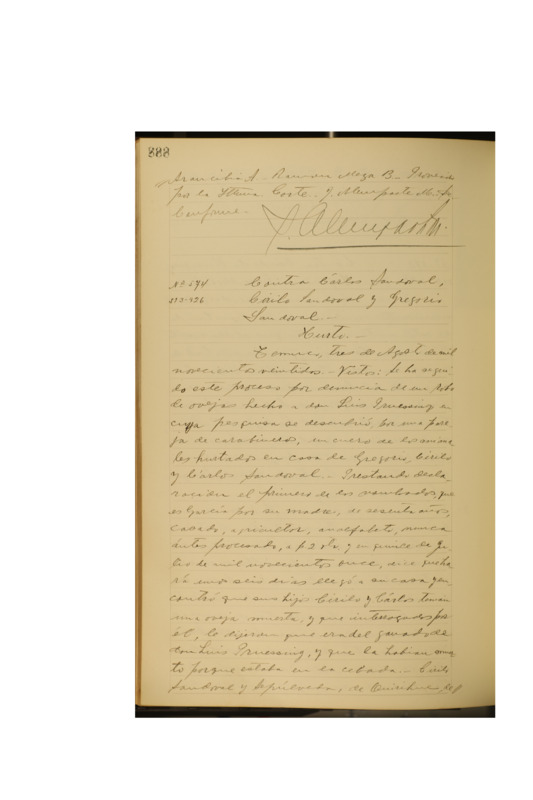 383
Arancibia A. - Ramon Meza B. - Proveido
por la Iltma Corte. J. Alemparte M. - Se
Conforme. -
Nº 674
Contra Cárlos Sandoval,
Cirilo Sandoval y Gregorio
Sandoval. -
Hurto. -
Temuco, tres de Agosto de mil
novecientos veintidos. - Vistos: Se ha segui-
do este proceso por denuncia de un robo
de ovejas hecho a don Luis Pruessing en
cuya pesquisa se descubrió, por una pare-
ja de carabineros, un cuero de los anima-
les hurtados en casa de Gregorio, Cirilo
y Cárlos Sandoval. - Prestando decla-
racion el primero de los nombrados, que
es García por su madre, de sesenta años,
casado, agricultor, analfabeto, nunca
ántes procesado, a f. 2 vta, y en quince de Ju-
lio de mil novecientos once, dice que ha-
rá unos seis dias llegó a su casa y en-
contró que sus hijos Cirilo y Cárlos tenian
una oveja muerta, y que interrogados por
él, le dijeron que era del ganado de
don Luis Pruessing, y que la habian muer-
to porque estaba en la cebada. - Cirilo
Sandoval y Sepúlveda, de Quirihue